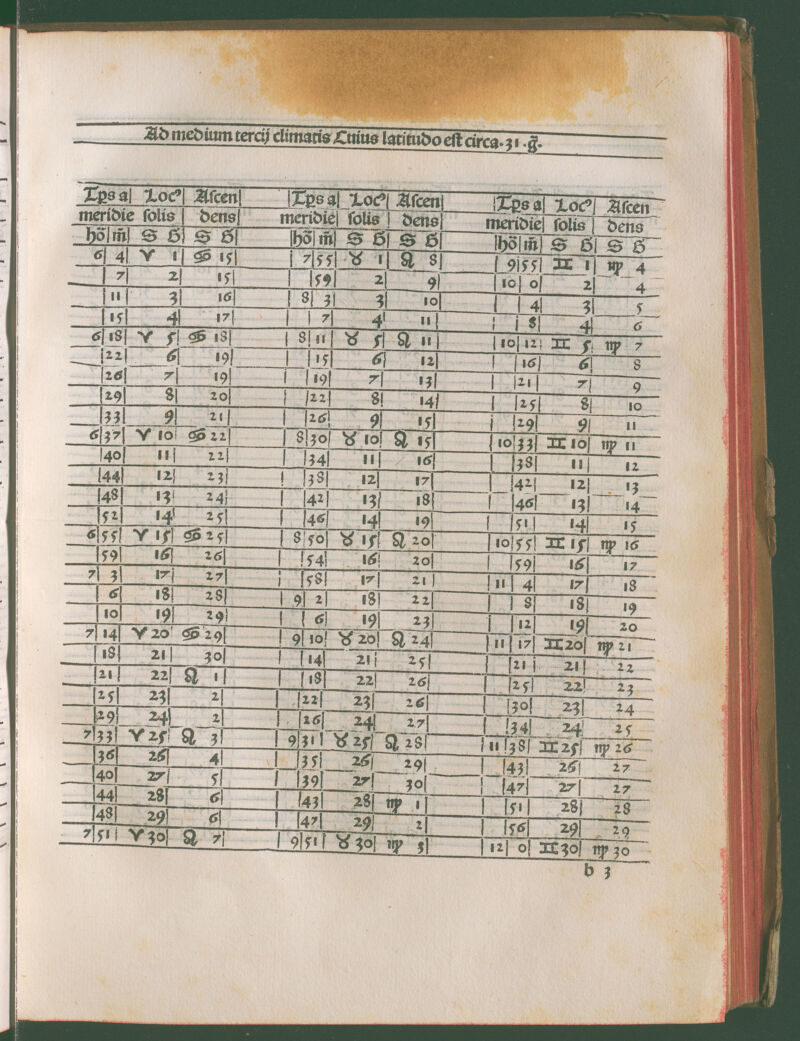 Ad medium tercij climatis Cuius latitudo est circa.31.g̃.
Tp̃s a Locꝰ Ascen Tp̃s a Locꝰ Ascen Tp̃s a Locꝰ Ascen
meridie solis dens meridie solis dens meridie solis dens
hõ m̃ S G̃ S G̃ hõ m̃ S G̃ S G̃ hõ m̃ S G̃ S G̃
6 4 ♈ 1 ♋ 15 7 55 ♉ 1 ♌ 8 9 55 ♊ 1 ♍ 4
7 2 15 59 2 9 10 0 2 4
11 3 16 8 3 3 10 4 3 5
15 4 17 7 4 11 8 4 6
6 18 ♈ 5 ♋ 18 8 11 ♉ 5 ♌ 11 10 12 ♊ 5 ♍ 7
22 6 19 15 6 12 16 6 8
26 7 19 19 7 13 21 7 9
29 8 20 22 8 14 25 8 10
33 9 21 26 9 15 29 9 11
6 37 ♈ 10 ♋ 22 8 30 ♉ 10 ♌ 15 10 33 ♊ 10 ♍ 11
40 11 22 34 11 16 38 11 12
44 12 23 38 12 17 42 12 13
48 13 24 42 13 18 46 13 14
52 14 25 46 14 19 51 14 15
6 55 ♈ 15 ♋ 25 8 50 ♉ 15 ♌ 20 10 55 ♊ 15 ♍ 16
59 16 26 54 16 20 59 16 17
7 3 17 27 58 17 21 11 4 17 18
6 18 28 9 2 18 22 8 18 19
10 19 29 6 19 23 12 19 20
7 14 ♈ 20 ♋ 29 9 10 ♉ 20 ♌ 24 11 17 ♊ 20 ♍ 21
18 21 30 14 21 25 21 21 22
21 22 ♌ 1 18 22 26 25 22 23
25 23 2 22 23 26 30 23 24
29 24 2 26 24 27 34 24 25
7 33 ♈ 25 ♌ 3 9 31 ♉ 25 ♌ 28 11 38 ♊ 25 ♍ 26
36 26 4 35 26 29 43 26 27
40 27 5 39 27 30 47 27 27
44 28 6 43 28 ♍ 1 51 28 28
48 29 6 47 29 2 56 29 29
7 51 ♈ 30 ♌ 7 9 51 ♉ 30 ♍ 3 12 0 ♊ 30 ♍ 30
b 3